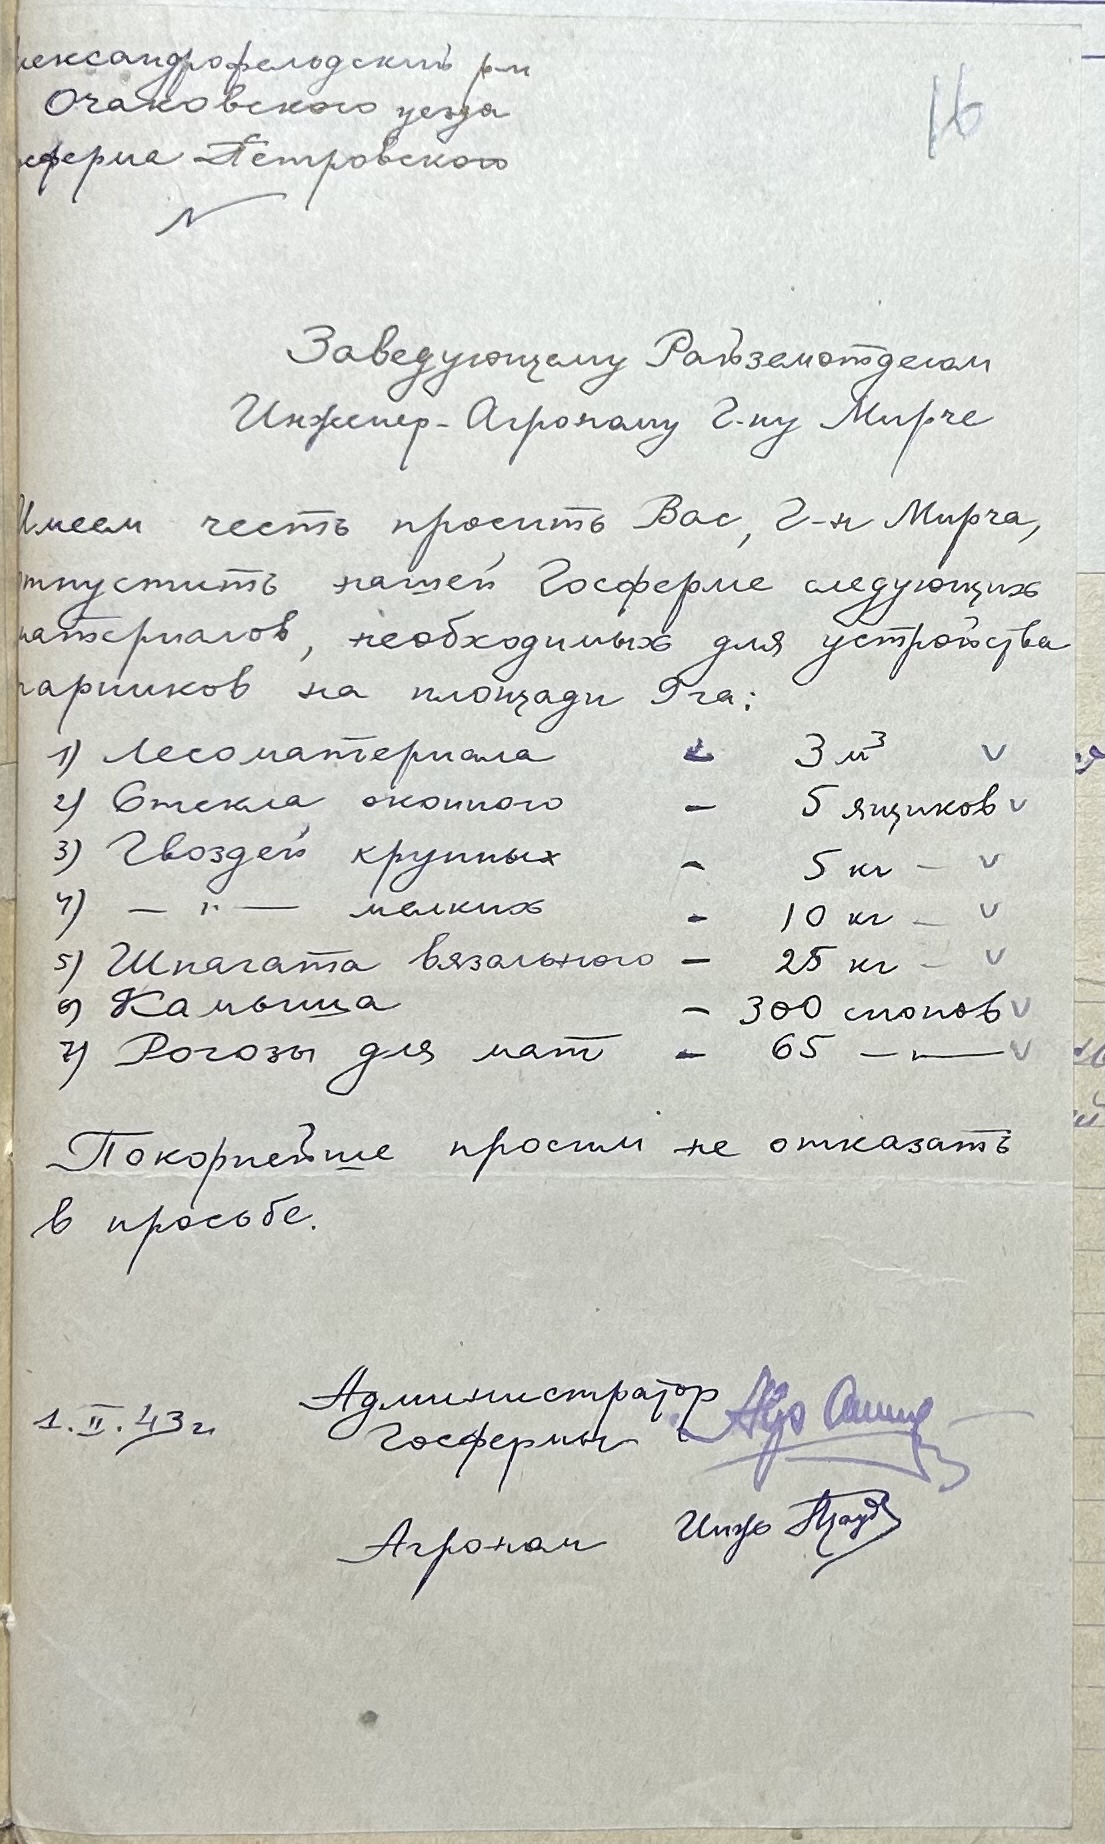 лександрофельдский р-н
Очаковского уезда
сферма Петровского
N
16
Заведующему Райземотделом
Инженер-Агроному Г-ну Мирче
Имеем честь просить Вас, Г-н Мирча,
тпустить нашей Госферме следующих
материалов, необходимых для устройства
парников на площади га:
1) Лесоматериала - 3 м³ v
2) Стекла оконного - 5 ящиков v
3) Гвоздей крупных - 5 кг - v
4) — " — мелких - 10 кг - v
5) Шпагата вязального - 25 кг - v
6) Камыша - 300 снопов v
7) Рогозы для мат - 65 — " — v
Покорнейше просим не отказать
в просьбе.
Администратор
1.II.43г. Госфермы
Агроном Инж